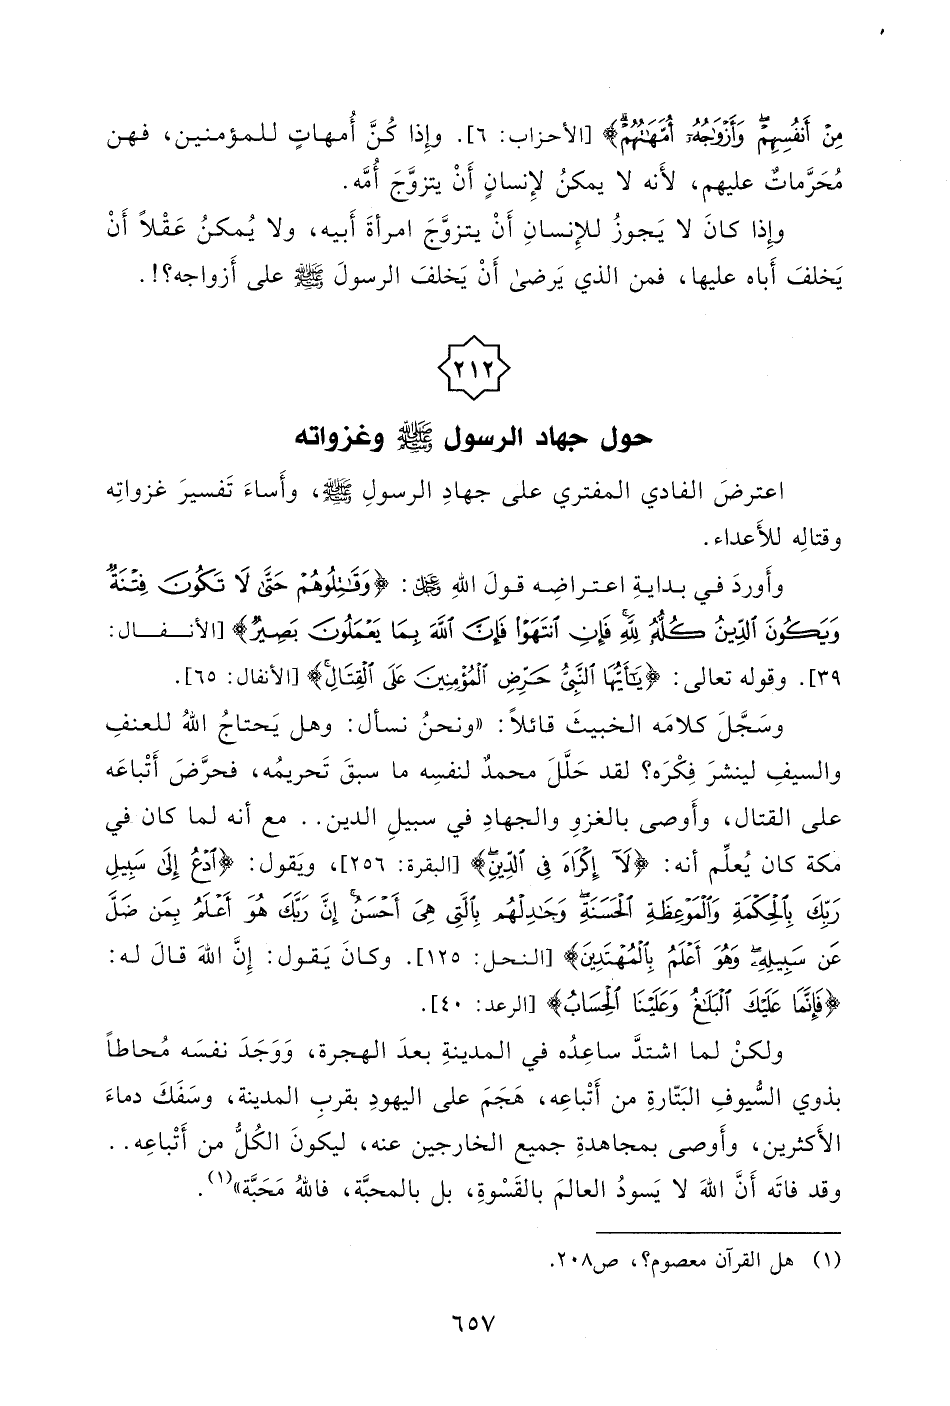 مِنْ أَنفُسِهِمْ وَأَزْوَاجُهُ أُمَّهَاتُهُمْ﴾ [الأحزاب: ٦]. وإِذا كُنَّ أُمهاتٍ للمؤمنين، فهن
مُحَرَّماتٌ عليهم، لأنه لا يمكنُ لإِنسانٍ أَنْ يتزوَّجَ أُمَّه.
وإِذا كانَ لا يَجوزُ للإِنسانِ أَنْ يتزوَّجَ امرأةَ أبيه، ولا يُمكنُ عَقْلاً أَنْ
يَخلفَ أَباه عليها، فمن الذي يَرضىٰ أَنْ يَخلفَ الرسولَ ﷺ على أَزواجه؟!.
٢١٢
حول جهاد الرسول ﷺ وغزواته
اعترضَ الفادي المفتري على جهادِ الرسولِ ﷺ، وأَساءَ تَفسيرَ غزواتِه
وقتالِه للأَعداء.
وأَوردَ في بدايةِ اعتراضِه قولَ اللهِ ﷿: ﴿وَقَاتِلُوهُمْ حَتَّىٰ لَا تَكُونَ فِتْنَةٌ
وَيَكُونَ الدِّينُ كُلُّهُ لِلَّهِ فَإِنِ انتَهَوْا فَإِنَّ اللَّهَ بِمَا يَعْمَلُونَ بَصِيرٌ﴾ [الأنفال:
٣٩]. وقوله تعالى: ﴿يَٰٓأَيُّهَا النَّبِيُّ حَرِّضِ الْمُؤْمِنِينَ عَلَى الْقِتَالِ﴾ [الأنفال: ٦٥].
وسَجَّلَ كلامَه الخبيثَ قائلاً: «ونحنُ نسأل: وهل يَحتاجُ اللهُ للعنفِ
والسيفِ لينشرَ فِكْرَه؟ لقد حَلَّلَ محمدٌ لنفسِه ما سبقَ تَحريمُه، فحرَّضَ أَتْباعَه
على القتال، وأَوصى بالغزوِ والجهادِ في سبيلِ الدين.. مع أنه لما كان في
مكة كان يُعلِّم أنه: ﴿لَآ إِكْرَاهَ فِى الدِّينِ﴾ [البقرة: ٢٥٦]، ويَقول: ﴿ادْعُ إِلَىٰ سَبِيلِ
رَبِّكَ بِالْحِكْمَةِ وَالْمَوْعِظَةِ الْحَسَنَةِ وَجَادِلْهُم بِالَّتِى هِىَ أَحْسَنُ إِنَّ رَبَّكَ هُوَ أَعْلَمُ بِمَن ضَلَّ
عَن سَبِيلِهِ وَهُوَ أَعْلَمُ بِالْمُهْتَدِينَ﴾ [النحل: ١٢٥]. وكانَ يَقول: إِنَّ اللهَ قالَ له:
﴿فَإِنَّمَا عَلَيْكَ الْبَلَاغُ وَعَلَيْنَا الْحِسَابُ﴾ [الرعد: ٤٠].
ولكنْ لما اشتدَّ ساعِدُه في المدينةِ بعدَ الهجرة، وَوَجَدَ نفسَه مُحاطاً
بذوي السُّيوفِ البَتّارةِ من أَتْباعِه، هَجَمَ على اليهودِ بقربِ المدينة، وسَفَكَ دماءَ
الأكثرين، وأَوصى بمجاهدةِ جميع الخارجين عنه، ليكونَ الكُلُّ من أَتْباعِه..
وقد فاتَه أَنَّ اللهَ لا يَسودُ العالمَ بالقَسْوةِ، بل بالمحبَّة، فاللهُ مَحَبَّة»(١).
(١) هل القرآن معصوم؟، ص٢٠٨.
٦٥٧